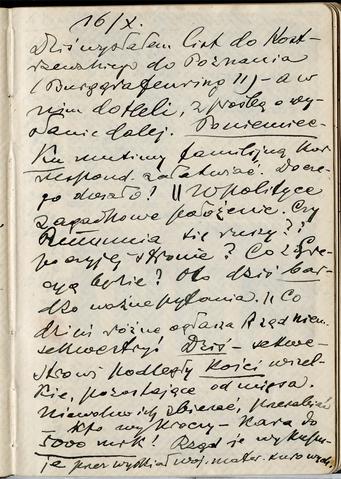 16/X.
Dziś wysłałem list do Kost-
rzewskiego do Poznania
(Burggrafenring 11) - a w
nim do Heli, z prośbą o wy-
słanie dalej. Po niemiec-
ku musimy familijną kor-
respond. załatwiać. Docze-
go doszło! || W polityce
zagadkowe położenie. Czy
Rumunia się ruszy??
po czyjej stronie? Co z Gre-
cyą będzie? Oto dziś bar-
dzo ważne pytania. || Co
dzień różne ogłasza Rząd niem.
sekwestry! Dziś - sekwe-
strowi podległy kości wszel-
kie, pozostające od mięsa.
Niewolno ich zbierać, przerabiać
- kto wykroczy - kara do
5000 mrk! Rząd je wykupu-
je przez wydział woj. mater. surowych.